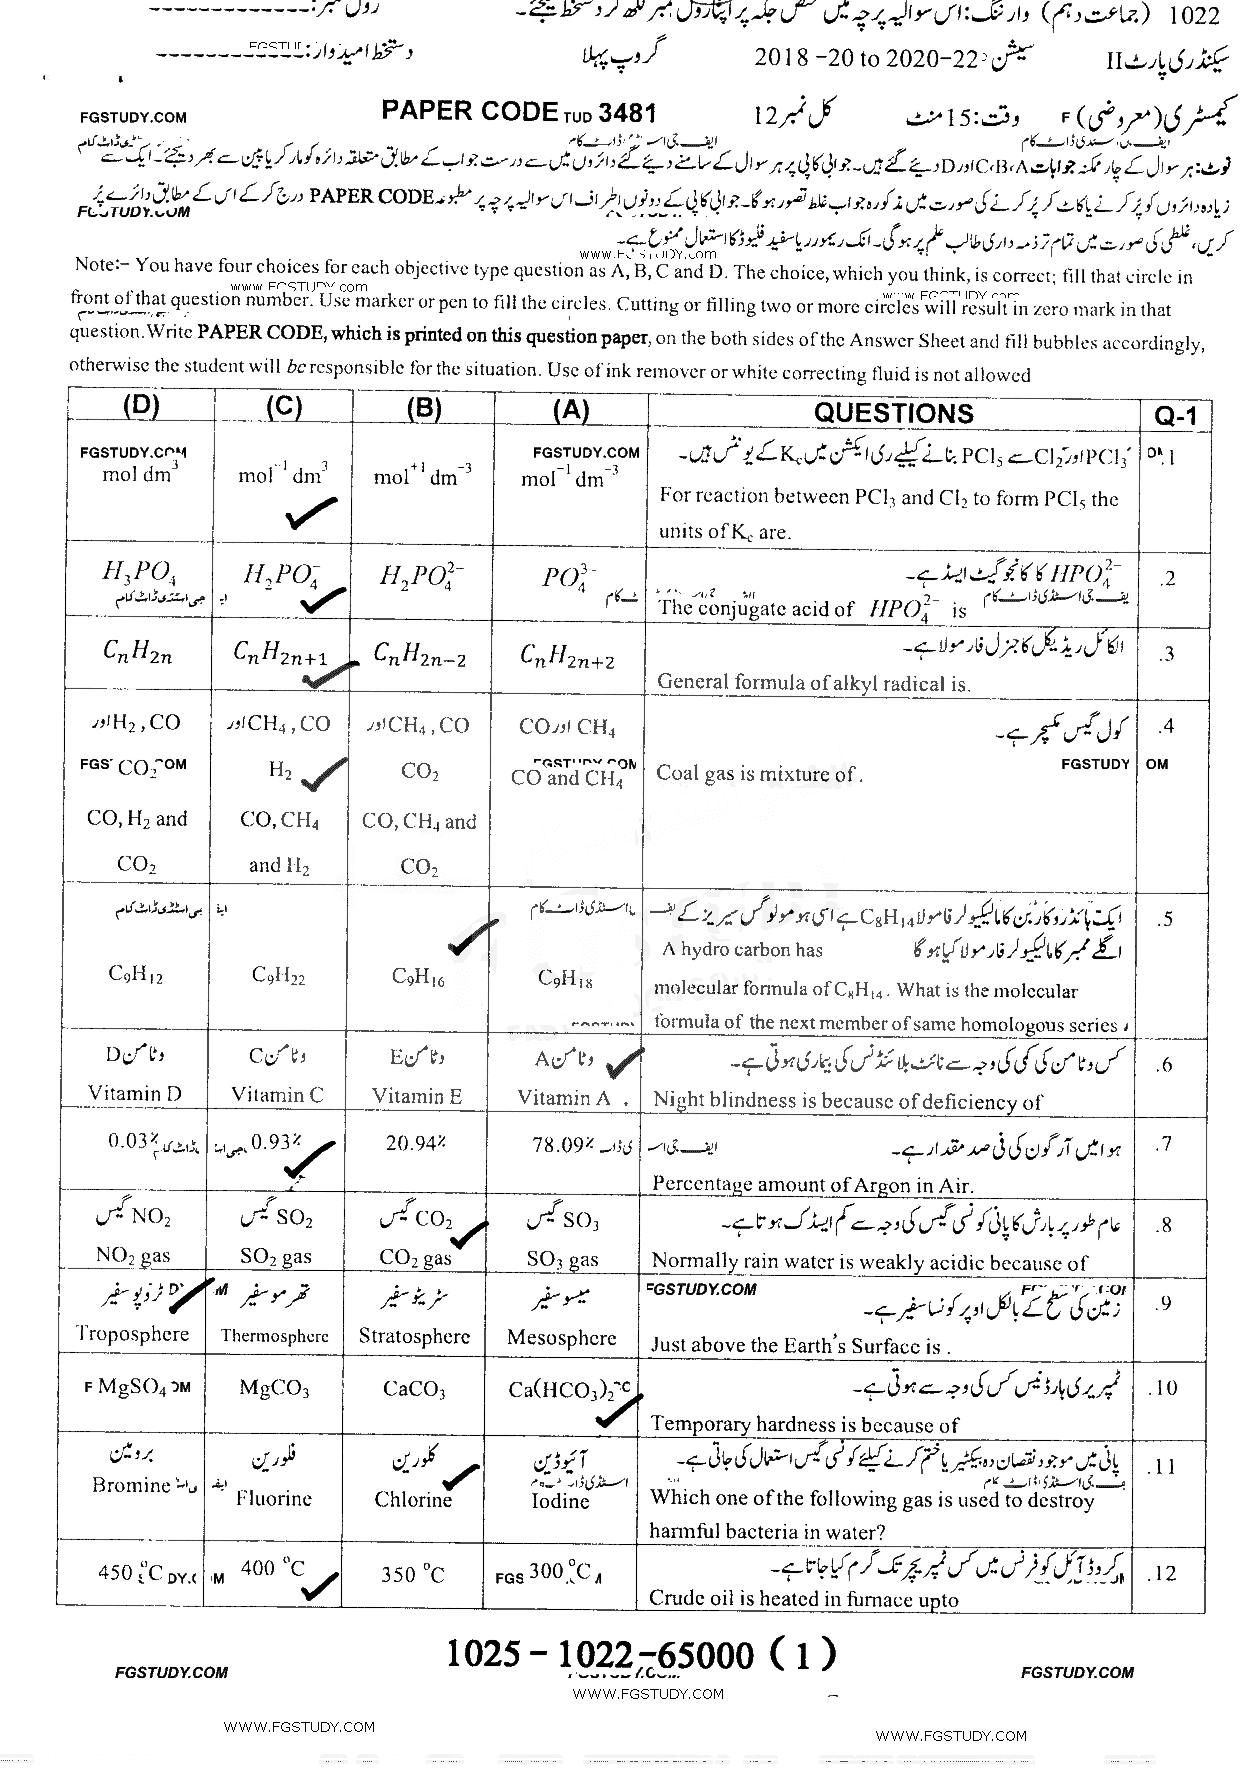 1022 (جماعت دہم) وارننگ: اس سوالیہ پرچہ میں مختص جگہ پر اپنا رول نمبر لکھ کر دستخط کیجئے۔ رول نمبر: ------------
سیکنڈری پارٹ II سیشن 2018 -20 to 2020-22 گروپ پہلا دستخط امیدوار: ------------
کیمسٹری (معروضی) وقت: 15 منٹ کل نمبر 12 PAPER CODE TUD 3481 FGSTUDY.COM
نوٹ: ہر سوال کے چار ممکنہ جوابات A، B، C اور D دیئے گئے ہیں۔ جوابی کاپی پر ہر سوال کے سامنے دیئے گئے دائروں میں سے درست جواب کے مطابق متعلقہ دائرہ کو مارکر یا پین سے بھر دیجئے۔ ایک سے
زیادہ دائروں کو پُر کرنے یا کاٹ کر پُر کرنے کی صورت میں مذکورہ جواب غلط تصور ہوگا۔ جوابی کاپی کے دونوں اطراف اس سوالیہ پرچہ پر مطبوعہ PAPER CODE درج کر کے اس کے مطابق دائرے پُر
کریں، غلطی کی صورت میں تمام تر ذمہ داری طالب علم پر ہوگی۔ انک ریمور ر یا سفید فلیوڈ کا استعمال ممنوع ہے۔
Note:- You have four choices for each objective type question as A, B, C and D. The choice, which you think, is correct; fill that circle in
front of that question number. Use marker or pen to fill the circles. Cutting or filling two or more circles will result in zero mark in that
question. Write PAPER CODE, which is printed on this question paper, on the both sides of the Answer Sheet and fill bubbles accordingly,
otherwise the student will be responsible for the situation. Use of ink remover or white correcting fluid is not allowed
(D) (C) (B) (A) QUESTIONS Q-1
PCl₃ اور Cl₂ سے PCl₅ بنانے کیلئے ری ایکشن میں Kc کے یونٹس ہیں۔ .1
For reaction between PCl₃ and Cl₂ to form PCl₅ the
units of Kc are.
mol dm³ mol⁻¹ dm³ mol⁺¹ dm⁻³ mol⁻¹ dm⁻³
HPO₄²⁻ کا کانجوگیٹ ایسڈ ہے۔ .2
The conjugate acid of HPO₄²⁻ is
H₃PO₄ H₂PO₄⁻ H₂PO₄²⁻ PO₄³⁻
الکائل ریڈیکل کا جنرل فارمولا ہے۔ .3
General formula of alkyl radical is.
CnH2n CnH2n+1 CnH2n−2 CnH2n+2
کول گیس مکسچر ہے۔ .4
Coal gas is mixture of .
H₂ , CO اور CH₄ , CO اور CH₄ , CO اور CH₄ اور CO
CO₂ H₂ CO₂ CO and CH₄
CO, H₂ and CO, CH₄ CO, CH₄ and
CO₂ and H₂ CO₂
ایک ہائیڈروکاربن کا مالیکیولر فامولا C₈H₁₄ ہے اسی ہومولوگس سیریز کے .5
اگلے ممبر کا مالیکیولر فارمولا کیا ہوگا A hydro carbon has
molecular formula of C₈H₁₄. What is the molecular
formula of the next member of same homologous series
C₉H₁₂ C₉H₂₂ C₉H₁₆ C₉H₁₈
کس وٹامن کی کمی کی وجہ سے نائٹ بلائنڈنس کی بیماری ہوتی ہے۔ .6
Night blindness is because of deficiency of
وٹامن D وٹامن C وٹامن E وٹامن A
Vitamin D Vitamin C Vitamin E Vitamin A .
ہوا میں آرگون کی فی صد مقدار ہے۔ .7
Percentage amount of Argon in Air.
0.03% 0.93% 20.94% 78.09%
عام طور پر بارش کا پانی کونسی گیس کی وجہ سے کم ایسڈک ہوتا ہے۔ .8
Normally rain water is weakly acidic because of
NO₂ گیس SO₂ گیس CO₂ گیس SO₃ گیس
NO₂ gas SO₂ gas CO₂ gas SO₃ gas
زمین کی سطح کے بالکل اوپر کونسا سفیر ہے۔ .9
Just above the Earth's Surface is .
ٹروپوسفیر تھرموسفیر سٹریٹوسفیر میسوسفیر
Troposphere Thermosphere Stratosphere Mesosphere
ٹمپریری ہارڈنیس کس کی وجہ سے ہوتی ہے۔ .10
Temporary hardness is because of
MgSO₄ MgCO₃ CaCO₃ Ca(HCO₃)₂
پانی میں موجود نقصان دہ بیکٹیریا ختم کرنے کیلئے کونسی گیس استعمال کی جاتی ہے۔ .11
Which one of the following gas is used to destroy
harmful bacteria in water?
برومین فلورین کلورین آئیوڈین
Bromine Fluorine Chlorine Iodine
کروڈ آئل کو فرنس میں کس ٹمپریچر تک گرم کیا جاتا ہے۔ .12
Crude oil is heated in furnace upto
450 °C 400 °C 350 °C 300 °C
1025 – 1022 –65000 ( 1 )
FGSTUDY.COM FGSTUDY.COM
WWW.FGSTUDY.COM
WWW.FGSTUDY.COM WWW.FGSTUDY.COM